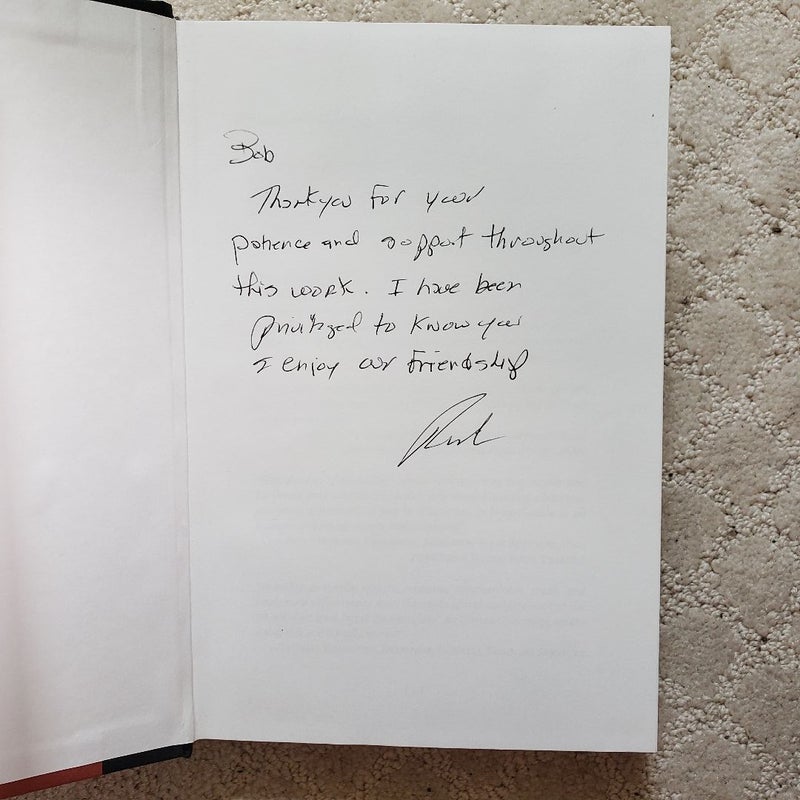 Bob
Thankyou For your
patience and support throughout
this work. I have been
privileged to know you
I enjoy our friendship